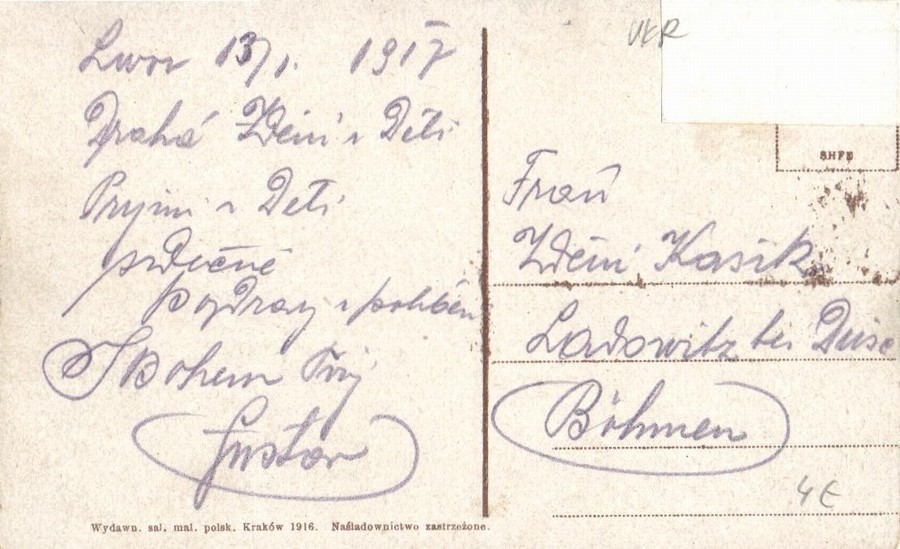 Lwov 13/1. 1917
Drahá Zdeni a Děti
Prijmi a Deti
srdečné
pozdravy a políbení
S Bohem Tvůj
Gustav
UKR
SHFB
Frau
Zdeni Kasik
Ladowitz bei Dux
Böhmen
4€
Wydawn. sal. mal. polsk. Kraków 1916. Naśladownictwo zastrzeżone.